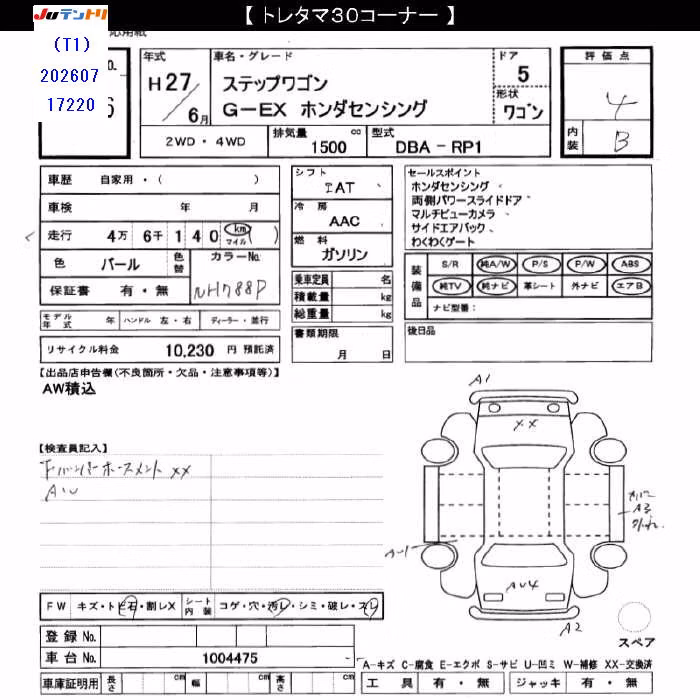 【 トレタマ30コーナー 】
JUテントリ
応用紙
(T1)
202607
17220
No.
6
年式
H27/6月
車名・グレード
ステップワゴン
G-EX ホンダセンシング
ドア
5
形状
ワゴン
評価点
4
内装
B
2WD・4WD
排気量
1500 cc
型式
DBA - RP1
車歴 自家用・( )
車検 年 月
走行 4万 6千 1 4 0 km マイル ( )
色 パール 色替 カラーNo. NH788P
保証書 有・無
モデル年式 年 ハンドル 左・右 ディーラー・並行
リサイクル料金 10,230 円 預託済
シフト
IAT
冷房
AAC
燃料
ガソリン
乗車定員 名
積載量 kg
総重量 kg
書類期限
月 日
セールスポイント
ホンダセンシング
両側パワースライドドア
マルチビューカメラ
サイドエアバック
わくわくゲート
装備品
S/R 純A/W P/S P/W ABS
純TV 純ナビ 革シート 外ナビ エアB
ナビ型番:
後日品
【出品店申告欄(不良箇所・欠品・注意事項等)】
AW積込
【検査員記入】
下バンパーホースメント XX
AW
A1
XX
A3
A-1
AU4
A2
スペア
FW キズ・トビ石・割レX シート内装 コゲ・穴・汚レ・シミ・破レ・スレ
登録 No.
車台 No. 1004475
A-キズ C-腐食 E-エクボ S-サビ U-凹ミ W-補修 XX-交換済
車庫証明用 長さ cm 幅 cm 高さ cm
工具 有・無 ジャッキ 有・無